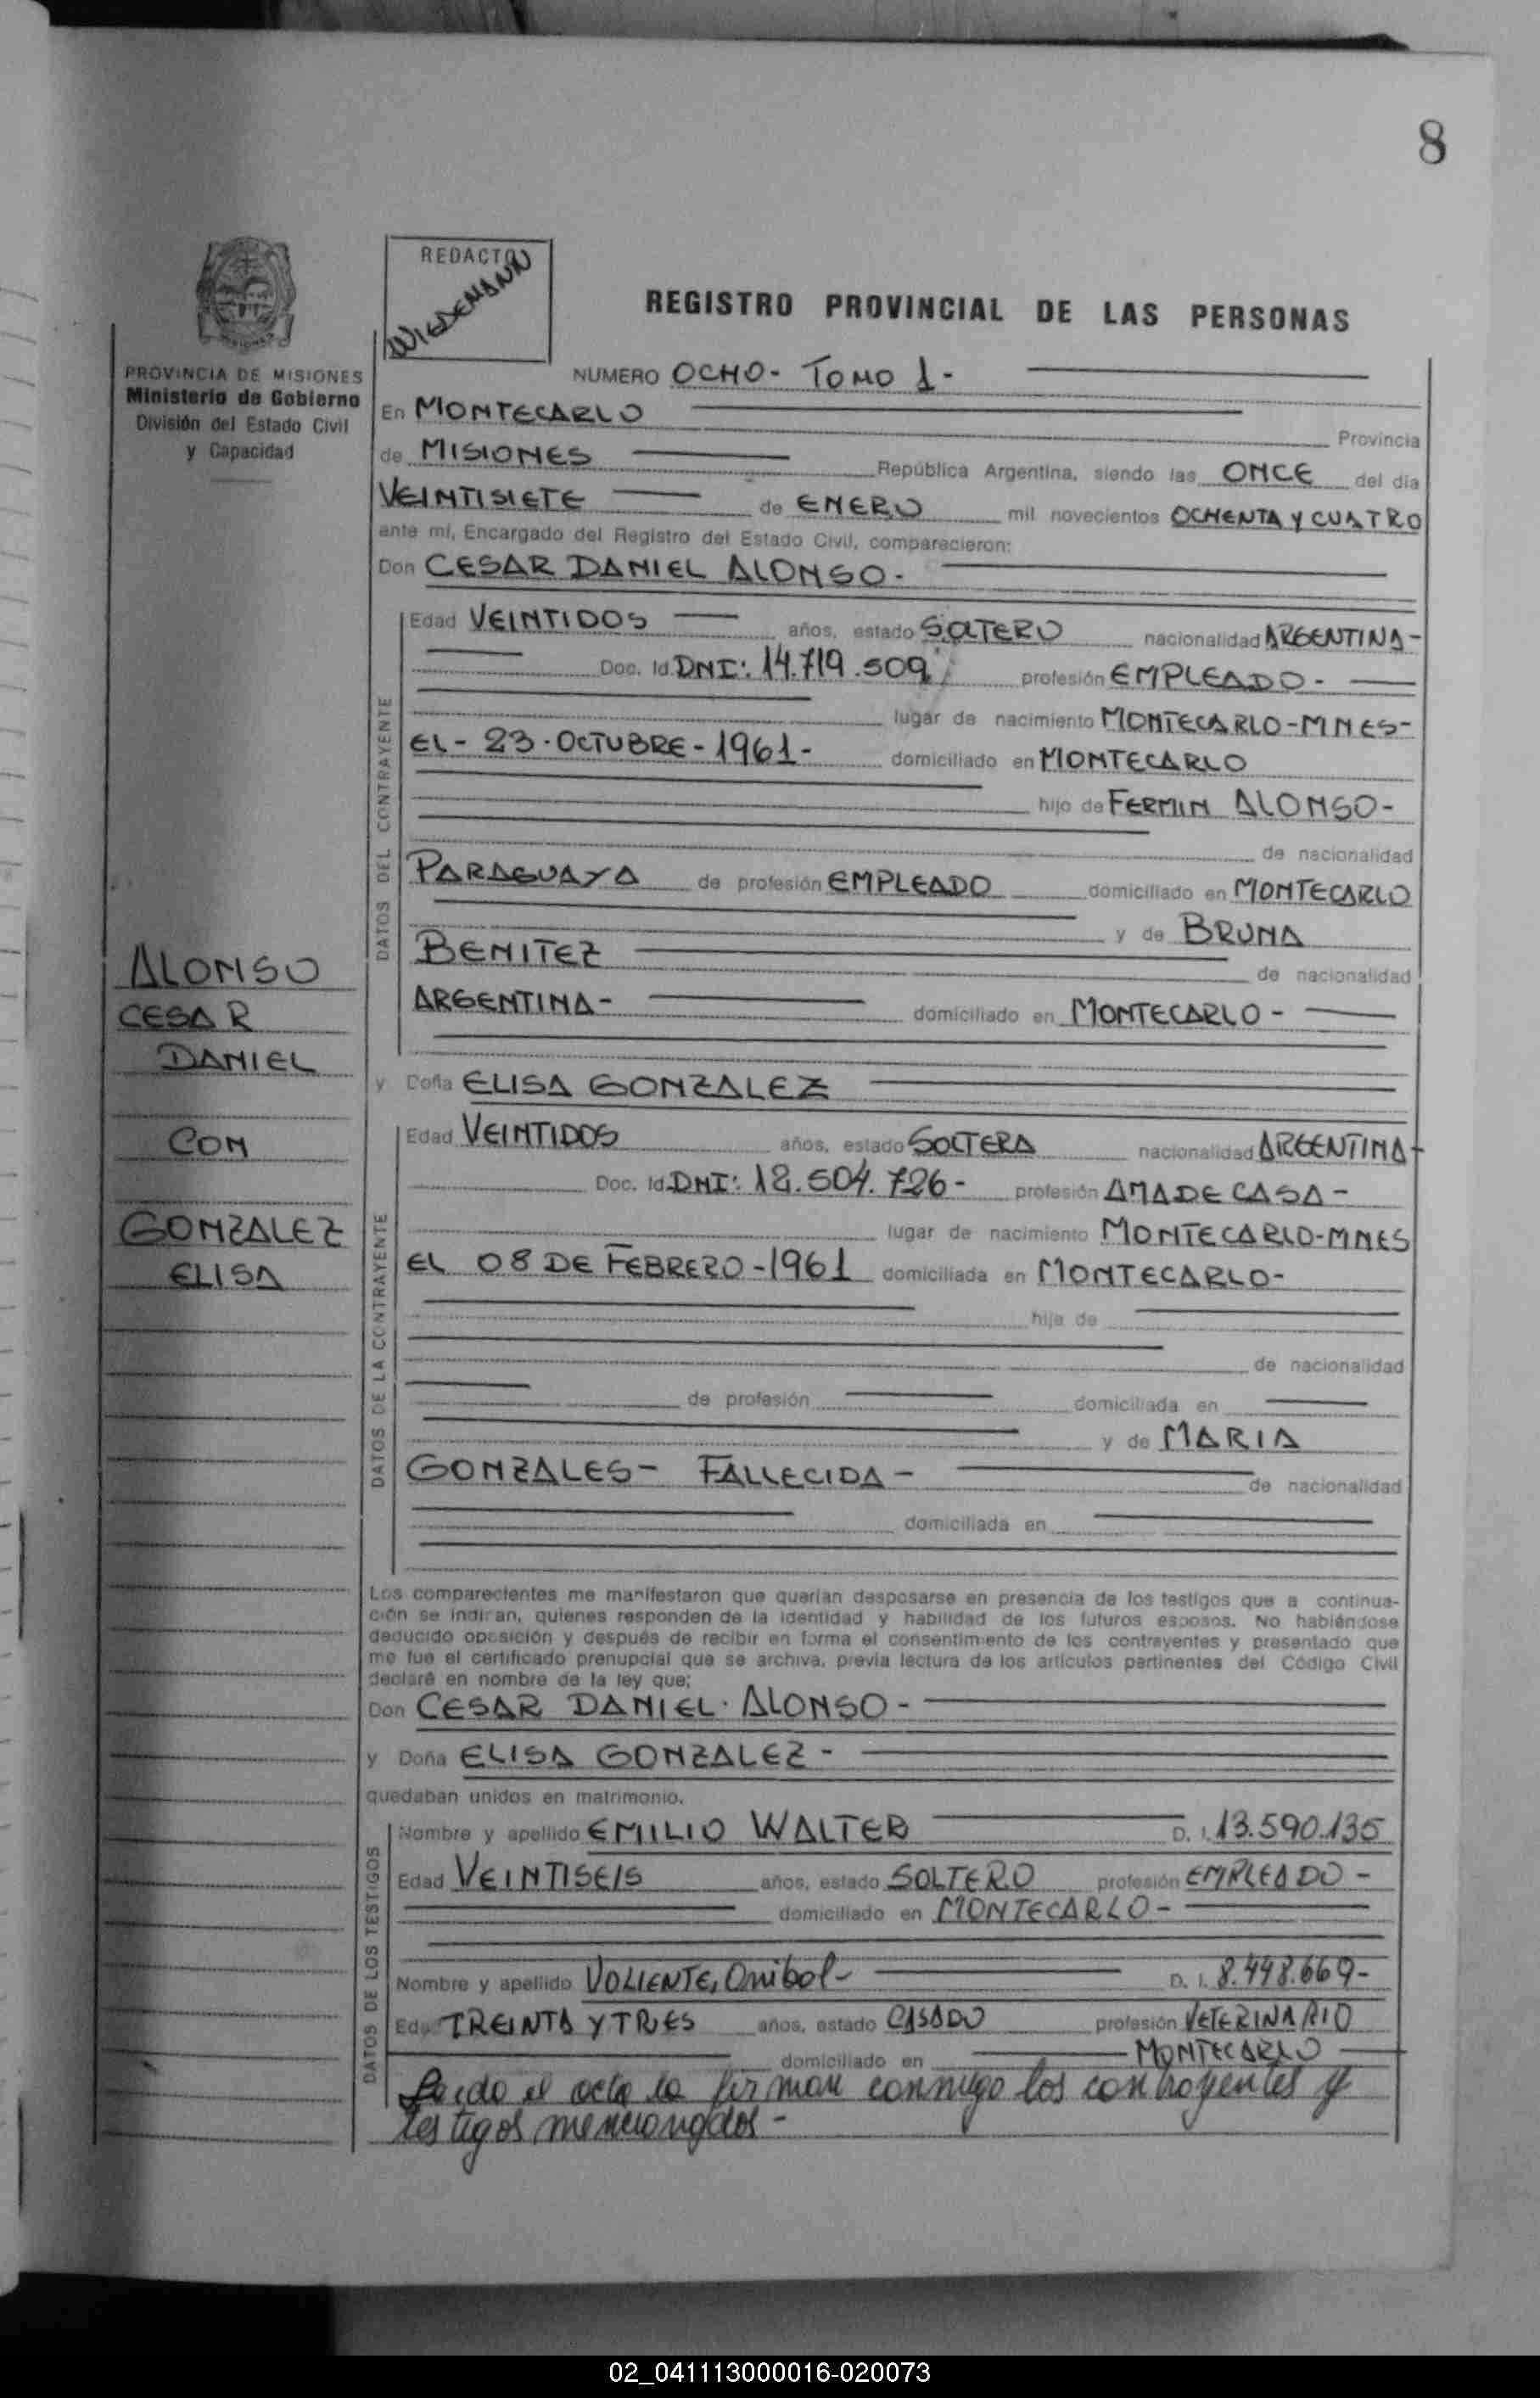 8
REDACTO
WIEDEMANN
REGISTRO PROVINCIAL DE LAS PERSONAS
PROVINCIA DE MISIONES
Ministerio de Gobierno
División del Estado Civil
y Capacidad
NUMERO OCHO- TOMO 1-
En MONTECARLO
Provincia
de MISIONES República Argentina, siendo las ONCE del día
VEINTISIETE de ENERO mil novecientos OCHENTA Y CUATRO
ante mí, Encargado del Registro del Estado Civil, comparecieron:
Don CESAR DANIEL ALONSO.-
DATOS DEL CONTRAYENTE
Edad VEINTIDOS años, estado SOLTERO nacionalidad ARGENTINA-
Doc. Id. DNI: 14.719.509 profesión EMPLEADO-
lugar de nacimiento MONTECARLO-MNES-
EL- 23-OCTUBRE-1961- domiciliado en MONTECARLO
hijo de FERMIN ALONSO-
de nacionalidad
PARAGUAYA de profesión EMPLEADO domiciliado en MONTECARLO
y de BRUNA
BENITEZ
de nacionalidad
ARGENTINA- domiciliado en MONTECARLO-
ALONSO
CESAR
DANIEL
CON
GONZALEZ
ELISA
y Doña ELISA GONZALEZ
DATOS DE LA CONTRAYENTE
Edad VEINTIDOS años, estado SOLTERA nacionalidad ARGENTINA-
Doc. Id. DNI: 12.504.726- profesión AMA DE CASA-
lugar de nacimiento MONTECARLO-MNES
EL 08 DE FEBRERO-1961 domiciliada en MONTECARLO-
hija de
de nacionalidad
de profesión domiciliada en
y de MARIA
GONZALES- FALLECIDA-
de nacionalidad
domiciliada en
Los comparecientes me manifestaron que querían desposarse en presencia de los testigos que a continua-
ción se indican, quienes responden de la identidad y habilidad de los futuros esposos. No habiéndose
deducido oposición y después de recibir en forma el consentimiento de los contrayentes y presentado que
me fue el certificado prenupcial que se archiva, previa lectura de los artículos pertinentes del Código Civil
declaré en nombre de la ley que;
Don CESAR DANIEL ALONSO-
y Doña ELISA GONZALEZ-
quedaban unidos en matrimonio.
DATOS DE LOS TESTIGOS
Nombre y apellido EMILIO WALTER D. I. 13.590.135
Edad VEINTISEIS años, estado SOLTERO profesión EMPLEADO-
domiciliado en MONTECARLO-
Nombre y apellido VOLIENTE, Onibol- D. I. 8.448.669-
Edad TREINTA Y TRES años, estado CASADO profesión VETERINARIO
domiciliado en MONTECARLO
Leido el acta la firman conmigo los contrayentes y
testigos mencionados-
02_041113000016-020073